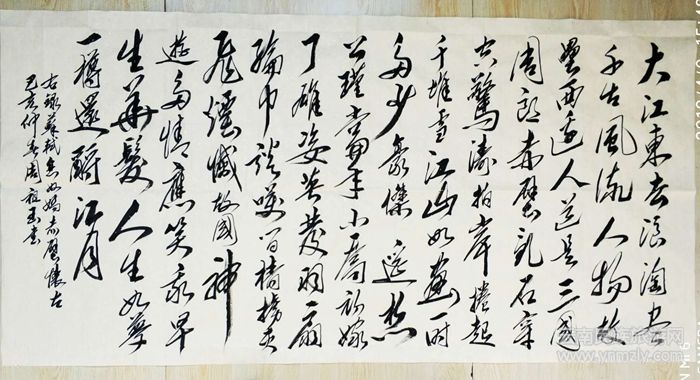 大江東去浪淘盡
千古風流人物故
壘西邊人道是三國
周郎赤壁乱石穿
空驚濤拍岸捲起
千堆雪江山如畫一時
多少豪傑遥想
公瑾當年小喬初嫁
了雄姿英發羽扇
綸巾談笑间檣櫓灰
飛煙滅故國神
遊多情應笑我早
生華髮人生如夢
一樽還酹江月
右録蘇軾念奴嬌赤壁懷古
己亥仲春周書
www.ynmzly.com